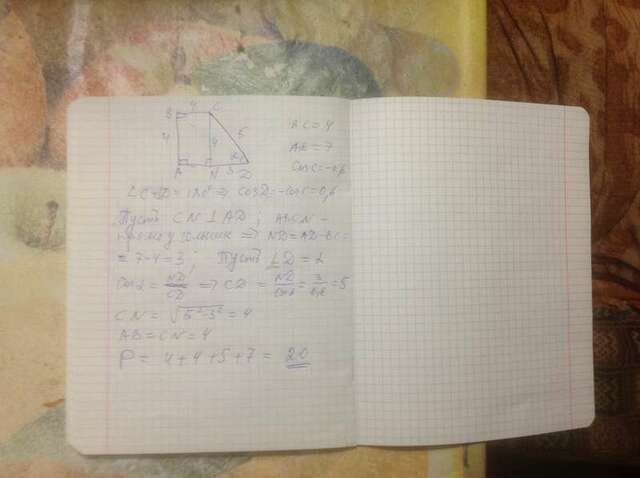 B 4 C
4 4 5
A N 3 D
BC = 4
AD = 7
cosC = -0,6
∠C+D = 180° ⇒ cosD = -cosC = 0,6
Пусть CN ⊥ AD; ABCN -
прямоугольник ⇒ ND = AD - BC =
= 7-4 = 3; Пусть ∠D = α
Cosα = ND/CD ⇒ CD = ND/cosα = 3/0,6 = 5
CN = √5²-3² = 4
AB = CN = 4
P = 4+4+5+7 = 20